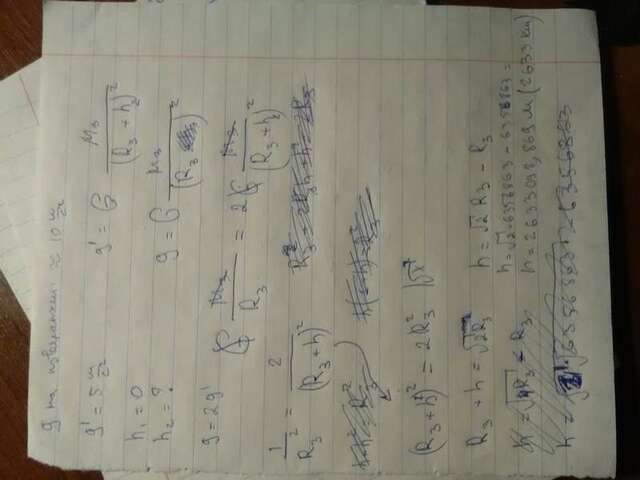 g на поверхности ≈ 10 м/с²
g' = 5 м/с² g' = G Mз/(Rз + h₂)²
h₁ = 0
h₂ = ? g = G Mз/(Rз)²
g = 2g' G Mз/Rз = 2G Mз/(Rз + h₂)²
1/Rз² = 2/(Rз + h)²
(Rз + h)² = 2Rз² |√
Rз + h = √2Rз h = √2Rз - Rз
h = √2·6356863 - 6356863 =
h = 2633098,869 м (2633 км)